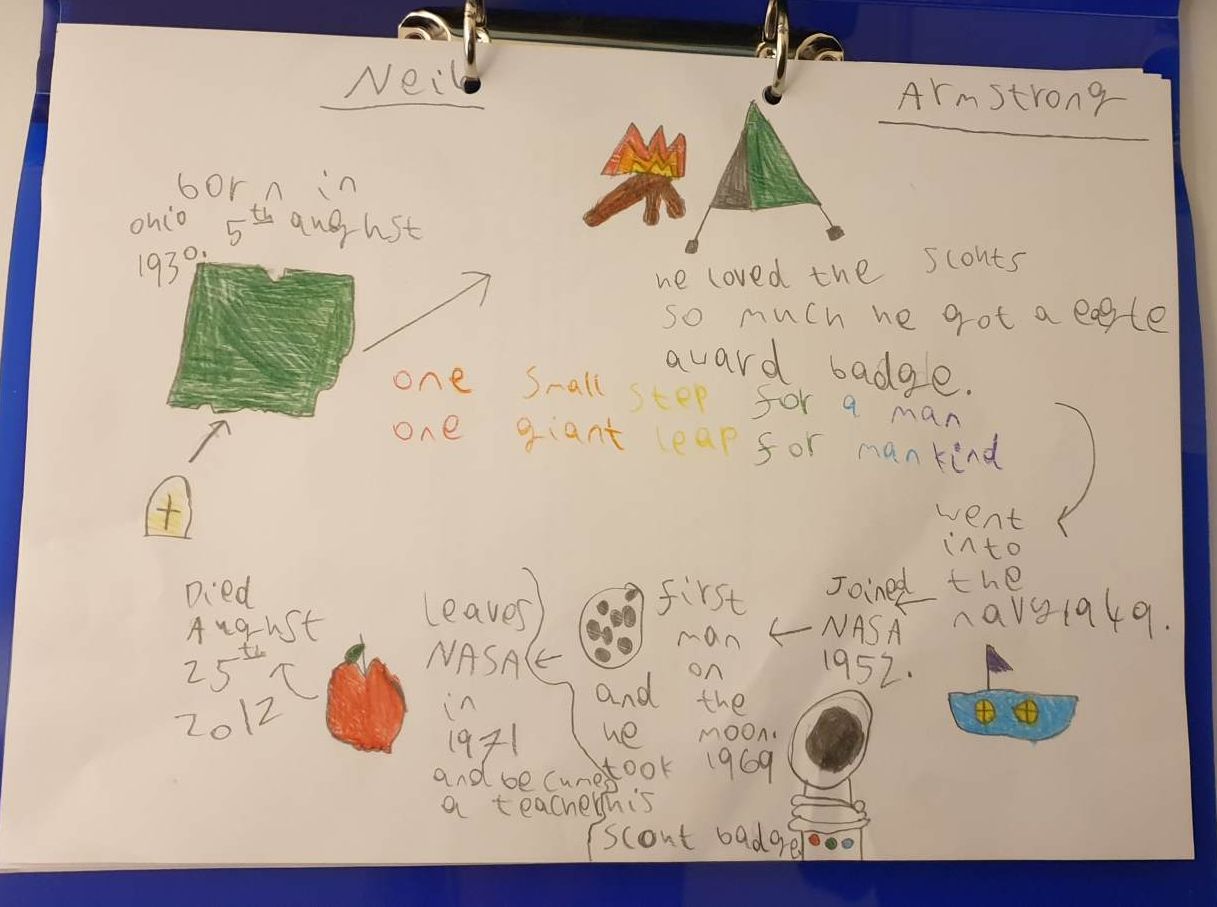 Neil Armstrong
born in
ohio 5th aughst
1930.
he loved the scouts
so much he got a eagle
award badge.
one small step for a man
one giant leap for mankind
went
into
the
navy 1949.
Joined
NASA
1952.
first
man
on
the
moon.
1969
and
he
took
his
scout badge
leaves
NASA
in
1971
and becumes
a teacher
Died
Aughst
25th
2012